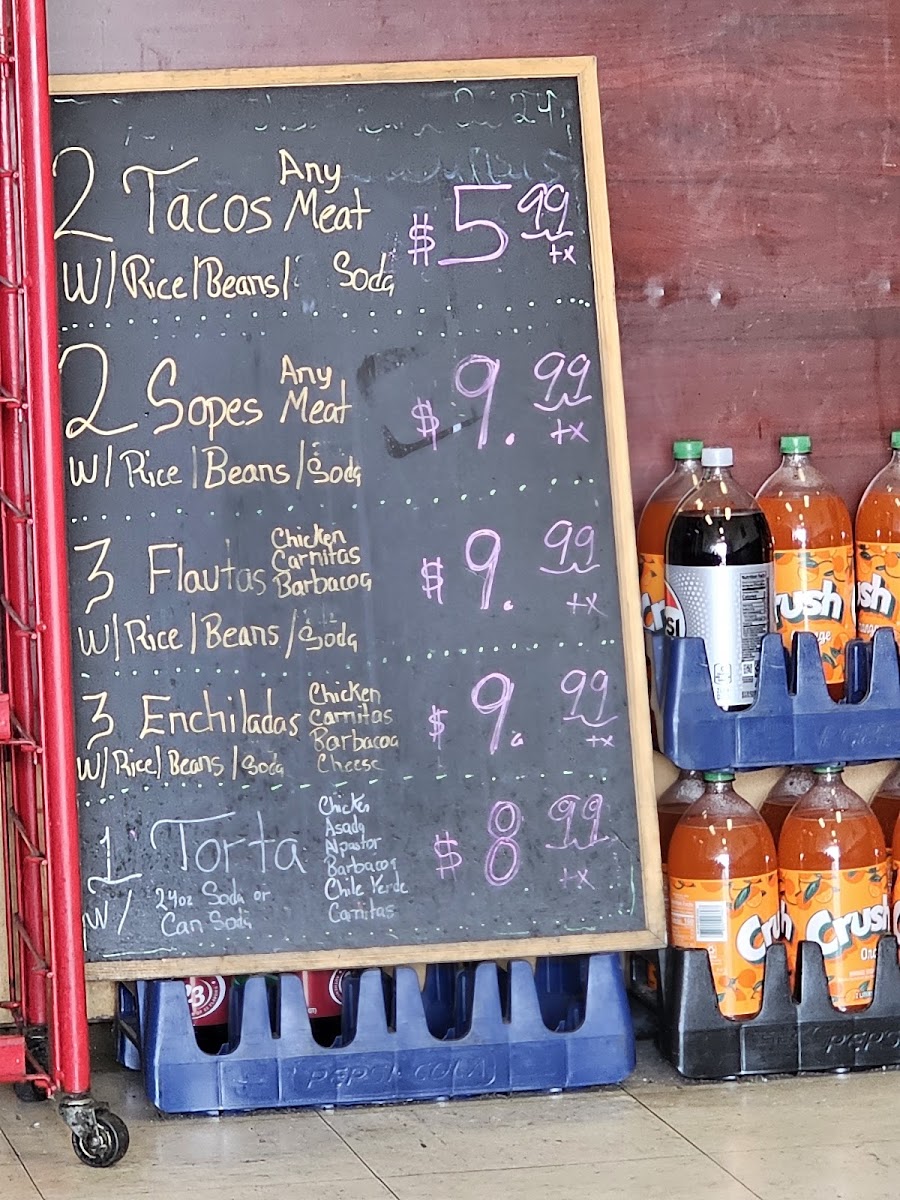 24
2 Tacos Any Meat $5 99 +x
W/Rice/Beans/ Soda
2 Sopes Any Meat $9. 99 +x
W/Rice/Beans/Soda
3 Flautas Chicken Carnitas Barbacoa $9. 99 +x
W/Rice/Beans/Soda
3 Enchiladas Chicken Carnitas Barbacoa Cheese $9. 99 +x
W/Rice/Beans/Soda
1 Torta Chicken Asada Alpastor Barbacoa Chile Verde Carnitas $8 99 +x
W/ 24oz Soda or
Can Soda
Crush
Crush
Crush
Crush
PEPSI-COLA
PEPSI